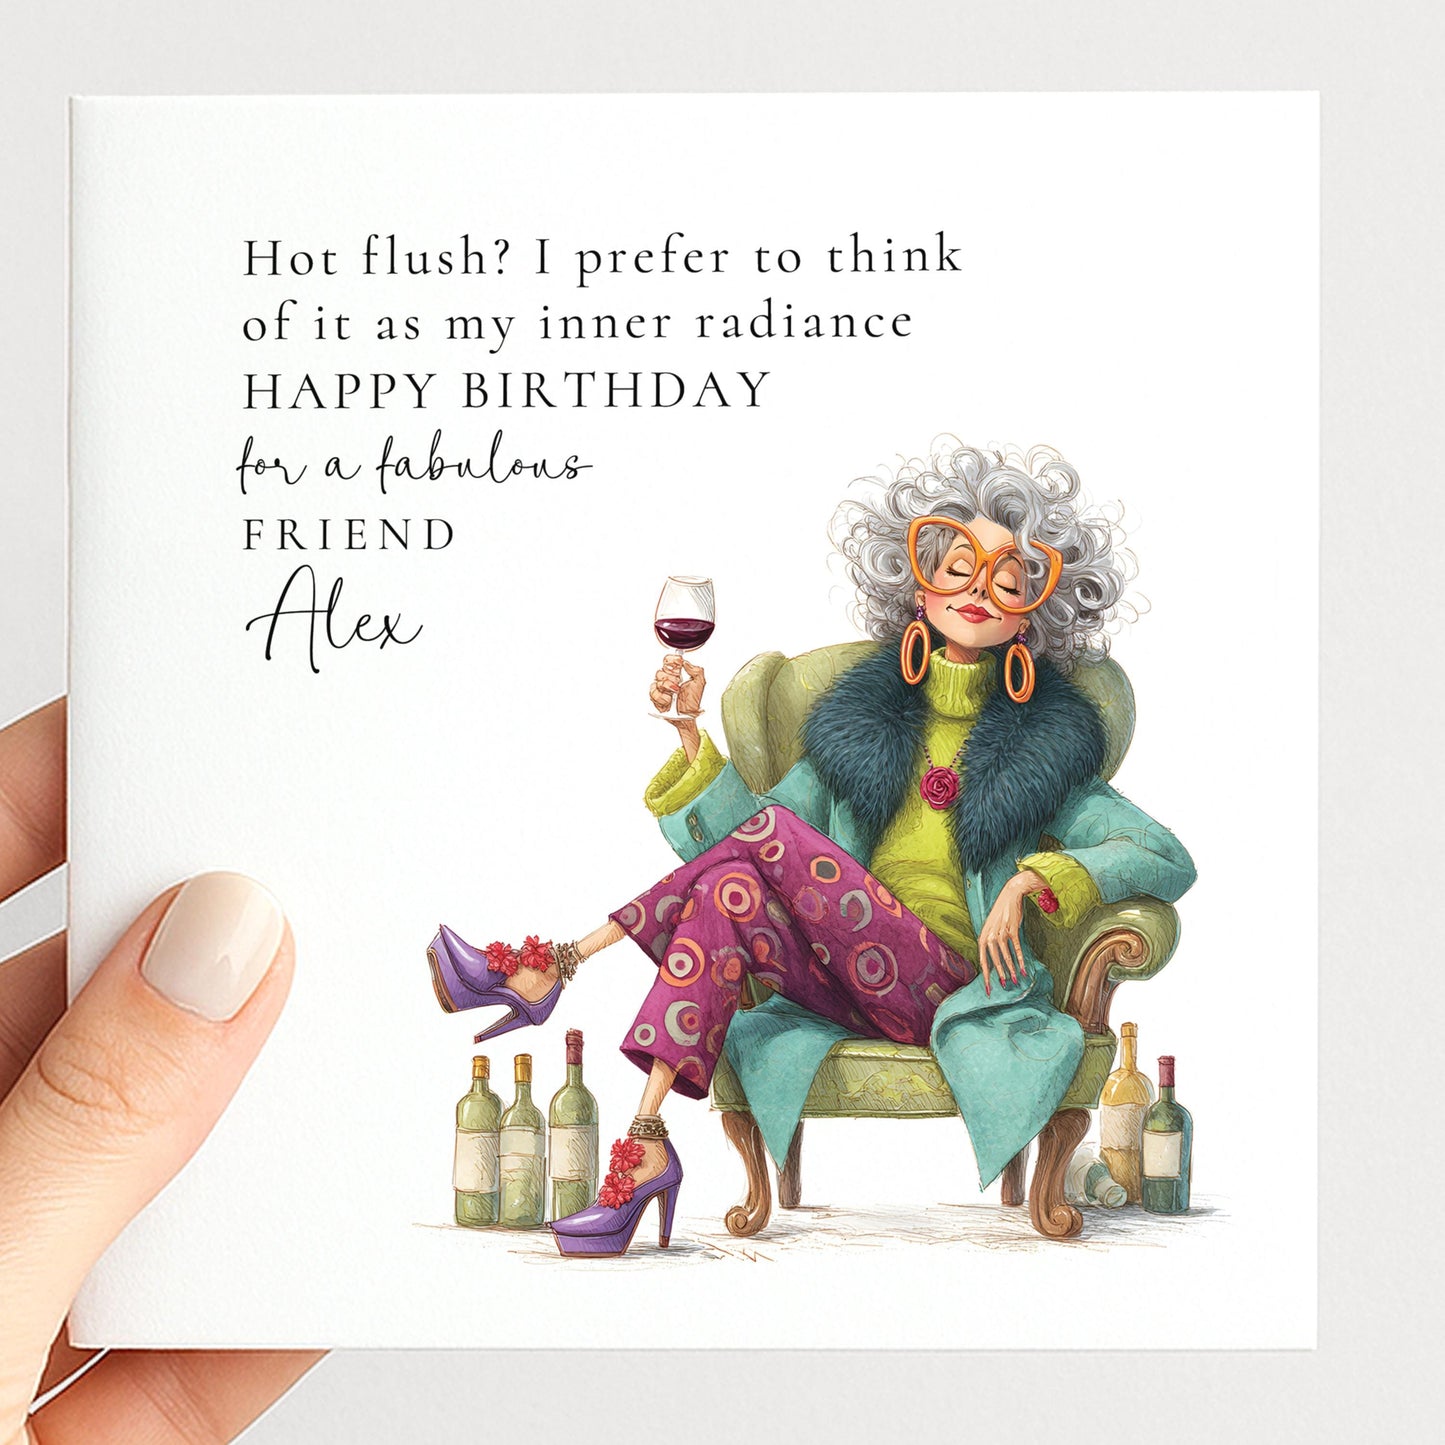 Hot flush? I prefer to think
of it as my inner radiance
HAPPY BIRTHDAY
for a fabulous
FRIEND
Alex